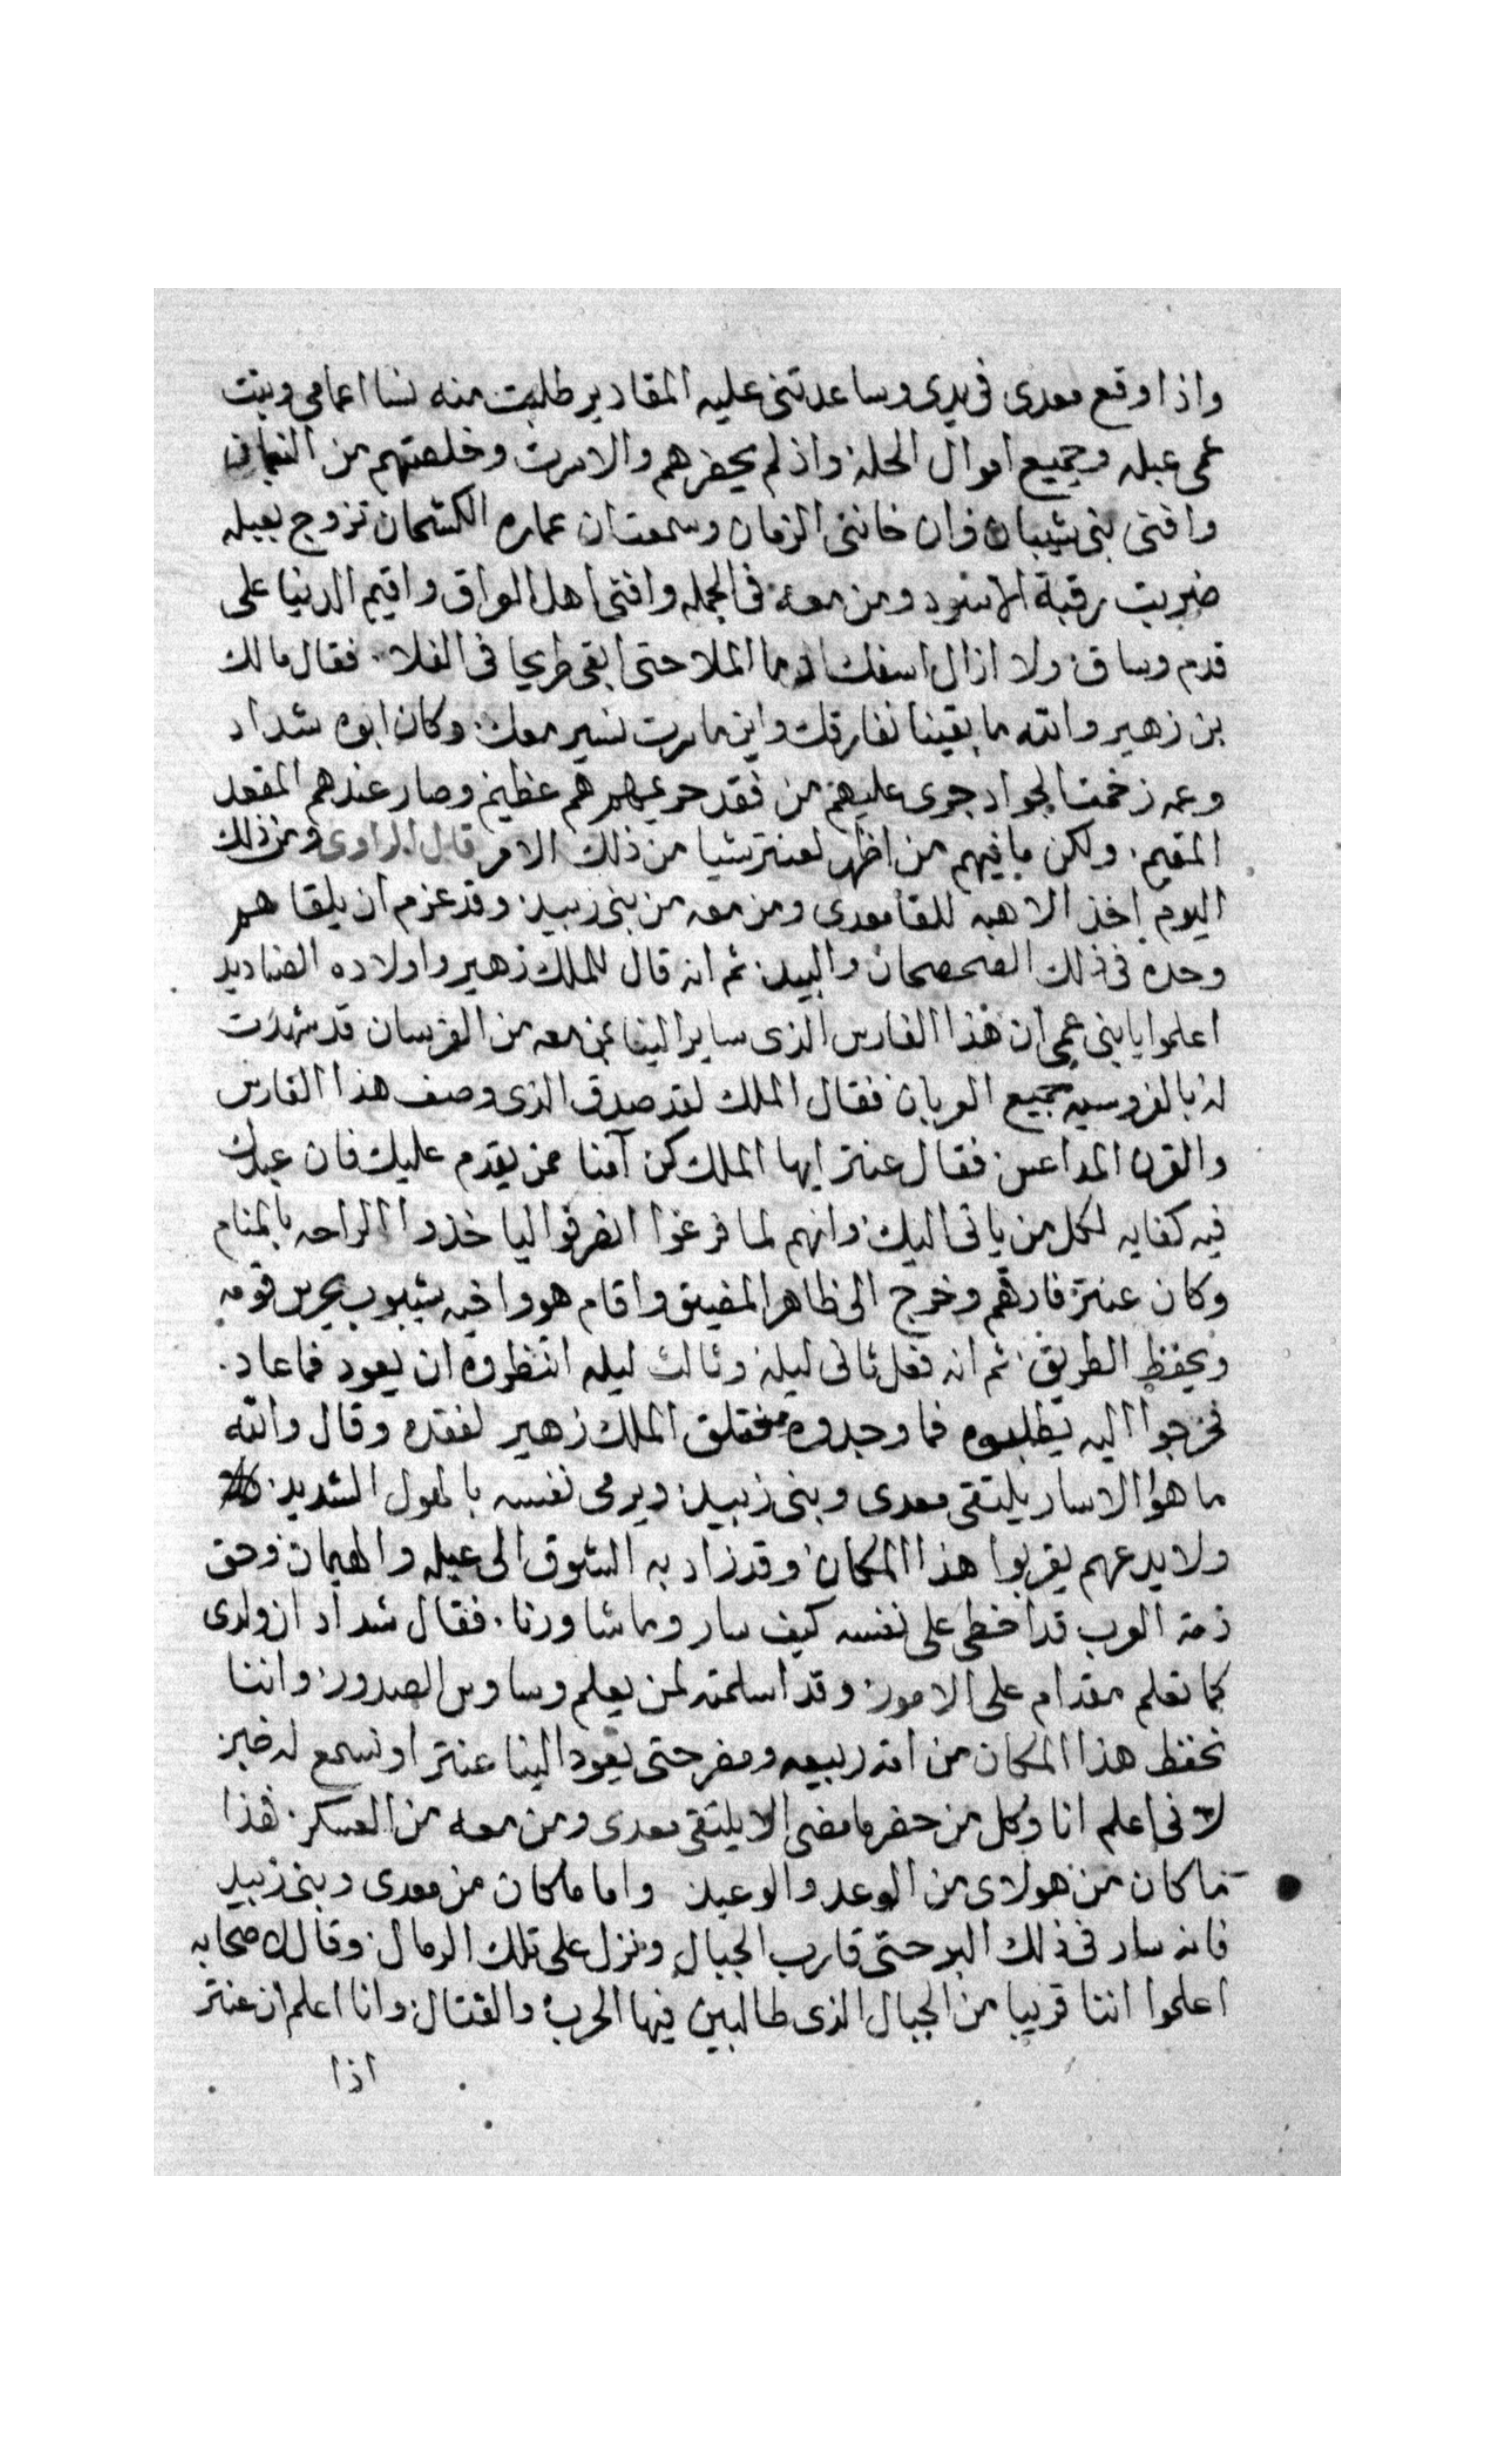 واذا وقع معدى فى يدى وساعدتنى عليه المقادير طلبت منه نسا اعمامى وبنت
عمى عبله وجميع اموال الحلة واذ لم يحضرهم والا سرت وخلصتهم من النعمان
وافنى بنى شيبان وان خاننى الزمان وسمعت ان عماره الكشحان تزوج بعبله
ضربت رقبة الاسود ومن معه فى الجمله وافنى اهل العراق واقيم الدنيا على
قدم وساق ولا ازال اسفك دما الملا حتى ابقى طريحا فى الفلا فقال مالك
بن زهير والله ما بقينا نفارقك واين ما سرت نسير معك وكان ابوه شداد
وعمه زخمة الجواد جرى عليهم من فقد حريمهم هم عظيم وصار عندهم المقعد
المقيم ولكن ما فيهم من اظهر لعنتر شيا من ذلك الامر قال الراوى ومن ذلك
اليوم اخذ الاهبه للقا معدى ومن معه من بنى زبيد وقد عزم ان يلقاهم
وحده فى ذلك الصحصحان والبيد ثم انه قال للملك زهير واولاده الصناديد
اعلموا يا بنى عمى ان هذا الفارس الذى ساير الينا بمن معه من الفرسان قد شهدت
له بالفروسيه جميع العربان فقال الملك لقد صدق الذى وصف هذا الفارس
والقرن المداعس فقال عنتر ايها الملك كن آمنا ممن يقدم عليك فان عبدك
فيه كفايه لكل من ياتى اليك وانهم لما فرغوا انصرفوا لياخذوا الراحه بالمنام
وكان عنتر فارقهم وخرج الى ظاهر المضيق واقام هو واخيه شيبوب يحرس قومه
ويحفظ الطريق ثم انه فعل ثانى ليلة وثالث ليله انتظروه ان يعود فما عاد
فخرجوا اليه يطلبوه فما وجدوه فقلق الملك زهير لفقده وقال والله
ما هو الا سار يلتقى معدى وبنى زبيد ويرمى نفسه بالهول الشديد
ولا يدعهم يقربوا هذا المكان وقد زاد به الشوق الى عبله والهيمان وحق
ذمة العرب قد اخطى على نفسه كيف سار وما شاورنا فقال شداد ان ولدى
كما تعلم مقدام على الامور وقد اسلمته لمن يعلم وساوس الصدور واننا
نحفظ هذا المكان من امة ربيعه ومضر حتى يعود الينا عنتر او نسمع له خبر
لانى اعلم انا وكل من حضر ما مضى الا يلتقى معدى ومن معه من العسكر فهذا
ما كان من هولاى من الوعد والوعيد واما ما كان من معدى وبنى زبيد
فانه سار فى ذلك البر حتى قارب الجبال ونزل على تلك الرمال وقال لاصحابه
اعلموا اننا قريبا من الجبال الذى طالبين فيها الحرب والقتال وانا اعلم ان عنتر
اذا